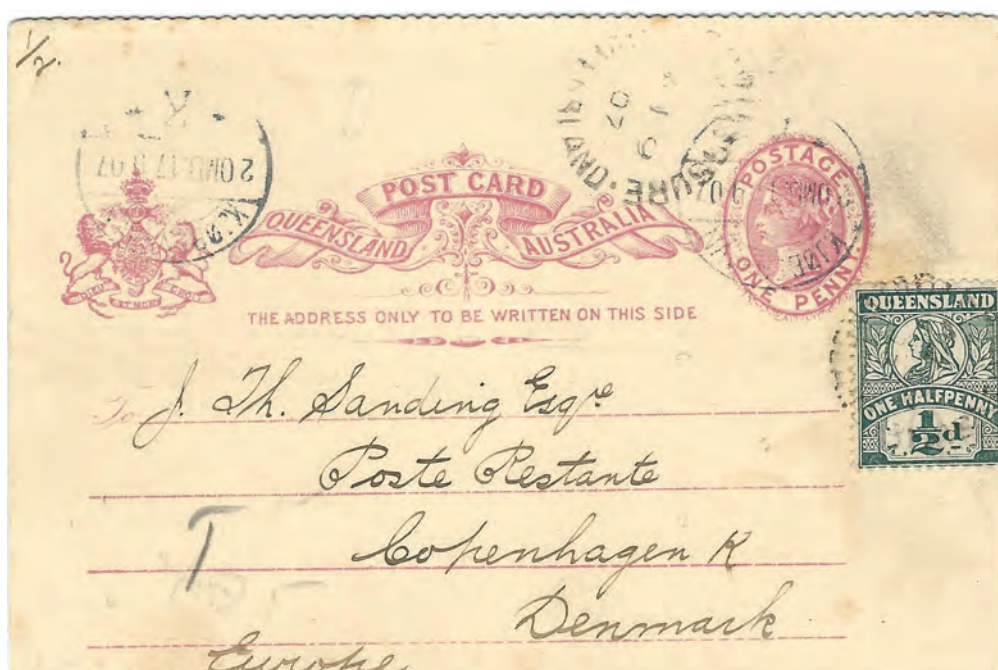 1/2
POST CARD
QUEENSLAND AUSTRALIA
POSTAGE
ONE PENNY
DIEU ET MON DROIT
THE ADDRESS ONLY TO BE WRITTEN ON THIS SIDE
QUEENSLAND
ONE HALFPENNY
1/2 d.
To J. Th. Sanding Esqre
Poste Restante
Copenhagen K
T
Denmark
Europe
2 OMB. 17 07